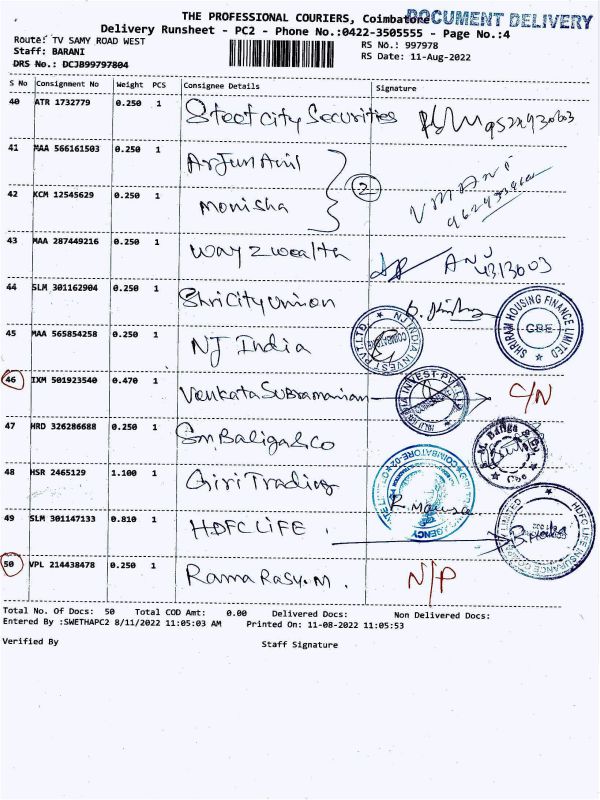 THE PROFESSIONAL COURIERS, Coimbatore
DOCUMENT DELIVERY
Delivery Runsheet - PC2 - Phone No.:0422-3505555 - Page No.:4
Route: TV SAMY ROAD WEST
RS No.: 997978
Staff: BARANI
RS Date: 11-Aug-2022
DRS No.: DCJB99797804
S No Consignment No Weight PCS Consignee Details Signature
40 ATR 1732779 0.250 1 Steel city Securities
41 MAA 566161503 0.250 1 Arjun Anil
42 KCM 12545629 0.250 1 Monisha
2
VMANI
43 MAA 287449216 0.250 1 Way 2 wealth
44 SLM 301162904 0.250 1 Shri City Union
SHRIRAM HOUSING FINANCE LIMITED
CBE
45 MAA 565854258 0.250 1 NJ India
NJ INDIA INVEST PVT.LTD.
COIMBATORE
46 IXM 501923540 0.470 1 Venkata Subramaniam C/N
47 HRD 326286688 0.250 1 Sm Baliga & co
48 HSR 2465129 1.100 1 Giri Trading
COIMBATORE-02
AGENCY
49 SLM 301147133 0.810 1 HDFC LIFE.
HDFC LIFE INSURANCE COMPANY LIMITED
50 VPL 214438478 0.250 1 Rama Rasy.M. N/P
Total No. Of Docs: 50 Total COD Amt: 0.00 Delivered Docs: Non Delivered Docs:
Entered By :SWETHAPC2 8/11/2022 11:05:03 AM Printed On: 11-08-2022 11:05:53
Verified By Staff Signature